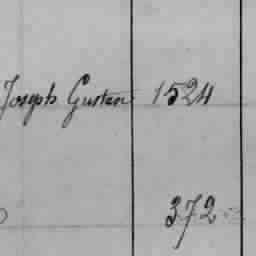 Joseph Gusten 1524
372